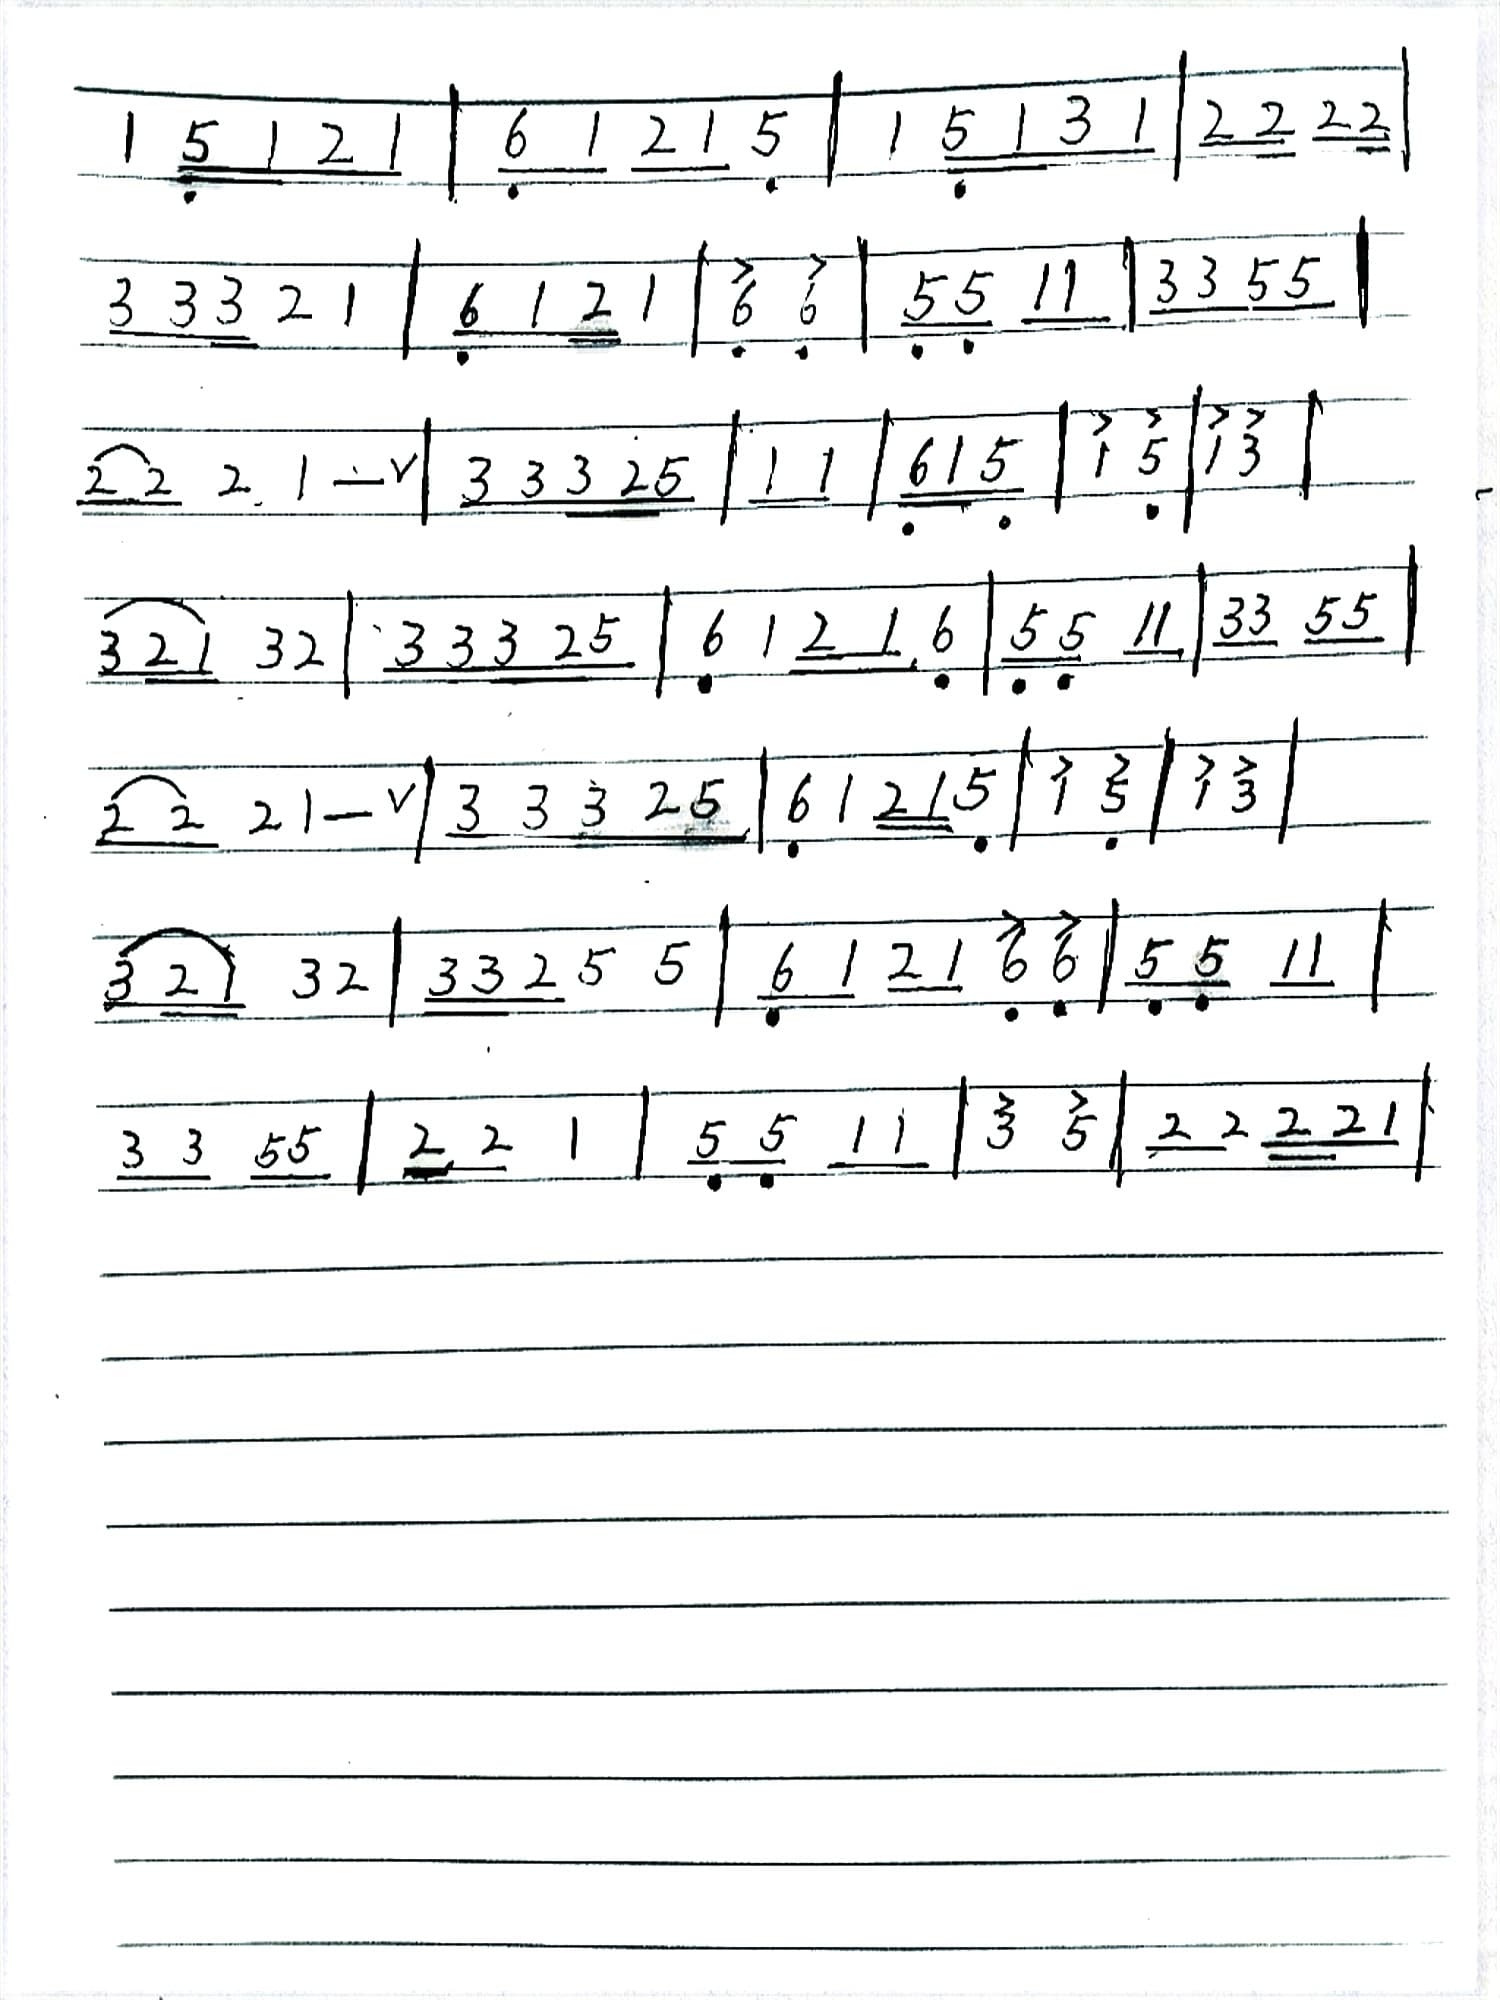 1 5 1 2 1 | 6 1 2 1 5 | 1 5 1 3 1 | 2 2 2 2 |
3 3 3 2 1 | 6 1 2 1 | 6 6 | 5 5 1 1 | 3 3 5 5 |
2 2 2. 1 — V | 3 3 3 2 5 | 1 1 | 6 1 5 | 1 5 | 1 3 |
3 2 1 3 2 | 3 3 3 2 5 | 6 1 2 1. 6 | 5 5 1 1 | 3 3 5 5 |
2 2 2 1 — V | 3 3 3 2 5 | 6 1 2 1 5 | 1 5 | 1 3 |
3 2 1 3 2 | 3 3 2 5 5 | 6 1 2 1 6 6 | 5 5 1 1 |
3 3 5 5 | 2. 2 1 | 5 5 1 1 | 3 5 | 2 2 2 2 1 |